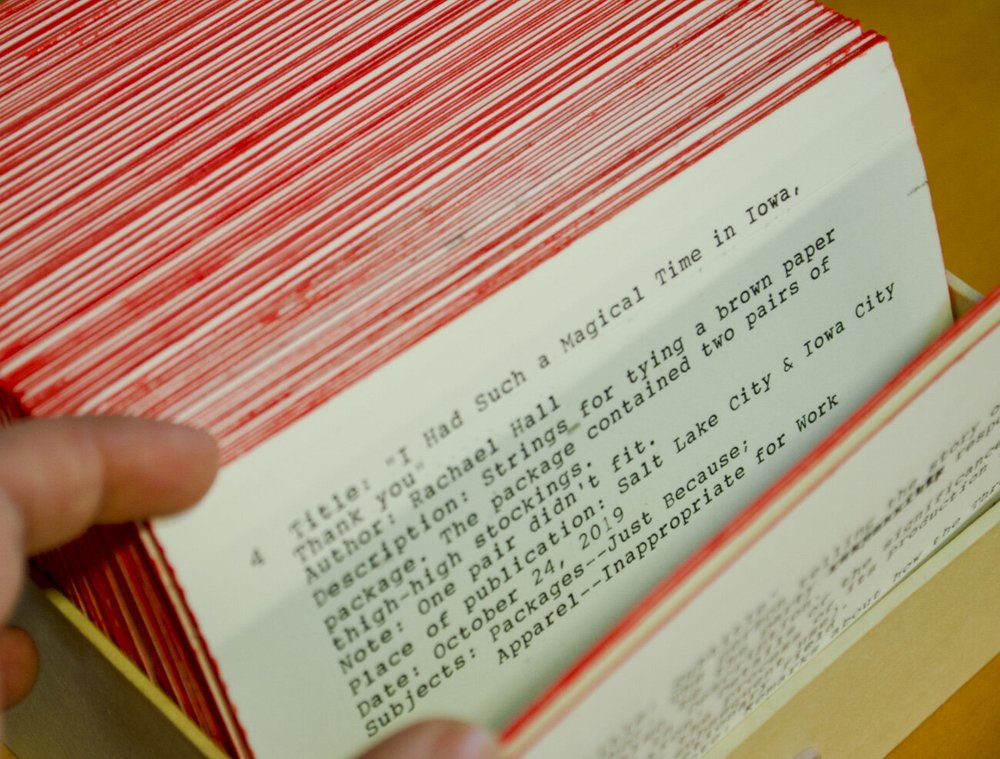 4
Title: "I Had Such a Magical Time in Iowa,
Thank you"
Author: Rachael Hall
Description: Strings for tying a brown paper
package. The package contained two pairs of
thigh-high stockings.
Note: One pair didn't fit.
Place of publication: Salt Lake City & Iowa City
Date: October 24, 2019
Subjects: Packages--Just Because;
Apparel--Inappropriate for Work
the story
significance
production
about how the